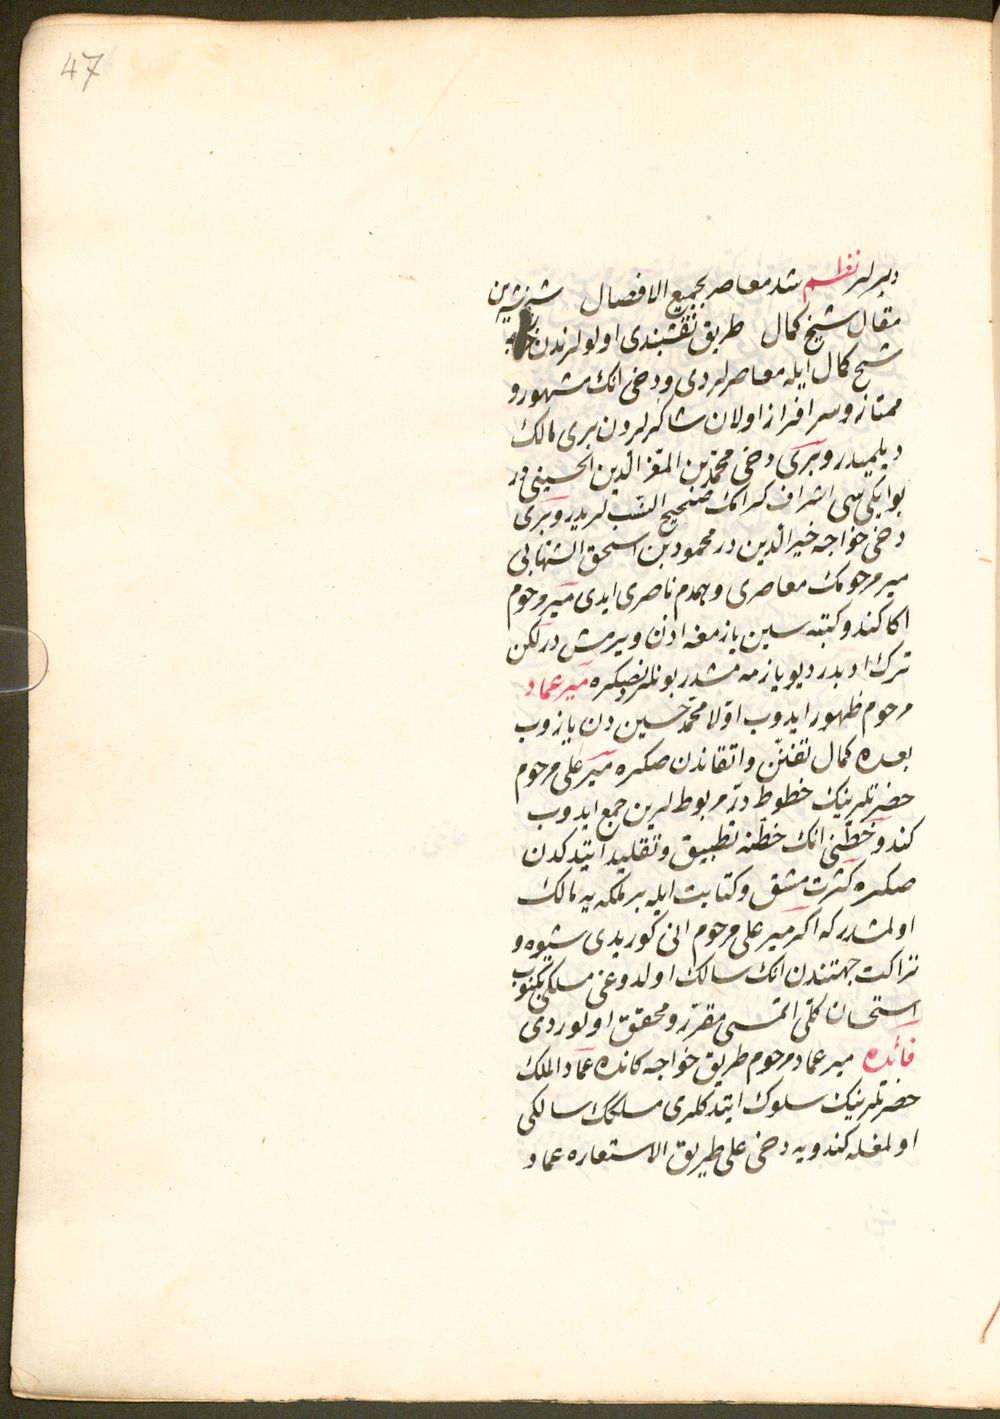 47
ديرلر نظم شد معاصر بجميع الافضال شيرين
مقال شيخ كمال طريق نقشبندى اولولرندن خواجه
شيخ كمال ايله معاصرلردى ودخى انك مشهور و
ممتاز وسرافراز اولان شاكردلردن برى مالك
ديلميدر وبرى دخى محمد بن المعز الدين الحسينى در
بو ايكى سى اشرافدر انك صحيح النسب لريدر وبرى
دخى خواجه خير الدين در محمود بن اسحق الشهابى
مير مرحومك معاصرى وهمدم ناصرى ايدى مير مرحوم
اكا كندو كتبه سين يازمغه اذن ويرمش در لكن
ترك ادبدر ديو يازمه مشدر بونلردنصكره مير عماد
مرحوم ظهور ايدوب اولا محمد حسين دن يازوب
بعده كمال تفنن واتقاندن صكره مير على مرحوم
حضرتلرينك خطوط در مربوط لرين جمع ايدوب
كندو خطنى انك خطنه تطبيق وتقليد ايتدكدن
صكره كثرت مشق وكتابت ايله بر ملكه يه مالك
اولمشدركه اكر مير على مرحوم انى كوريدى شيوه و
نزاكت جهتندن انك سالك اولدوغى مسلكى بكنوب
استحسان كلى اتمسى مقرر ومحقق اولوردى
فائده مير عماد مرحوم طريق خواجه كانده عماد الملك
حضرتلرينك سلوك ايتدكلرى مسلكك سالكى
اولمغله كندويه دخى على طريق الاستعاره عماد